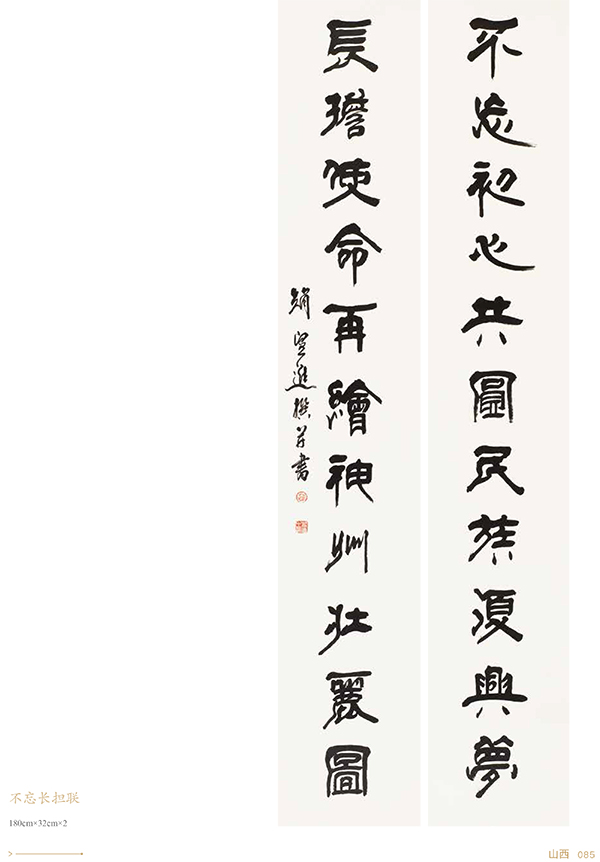 不忘初心共圖民族復興夢
長擔使命再繪神州壯麗圖
趙望進撰并書
不忘长担联
180cm×32cm×2
山西 085